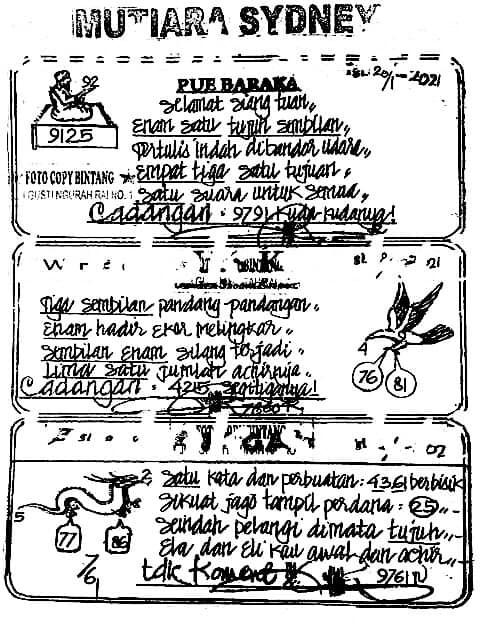 MUTIARA SYDNEY
PUE BARAKA
SL: 20/1-2021
92
9125
FOTO COPY BINTANG
I GUSTI NGURAH RAI NO. 1
Selamat siang tuan,,
Enam satu tujuh sembilan,,
Tertulis indah dibandar udara,,
Empat tiga satu tujuan,,
Satu suara untuk semua,,
Cadangan : 9791 kuda-kudanya!
21
Tiga sembilan pandang-pandangan,,
Enam hadir ekor melingkar,,
Sembilan enam silang terjadi,,
Lima satu jumlah achirnya,,
Cadangan : 4215 segitiganya!
4
76
81
02
Satu kata dan perbuatan : 4361 berbisik
Sikuat jago tampil perdana : 25,,
Seindah pelangi dimata tujuh,,
Eka dan Eli kau awal dan achir,,
tdk Koment !!!
9761
2
5
77
86
7/6
1